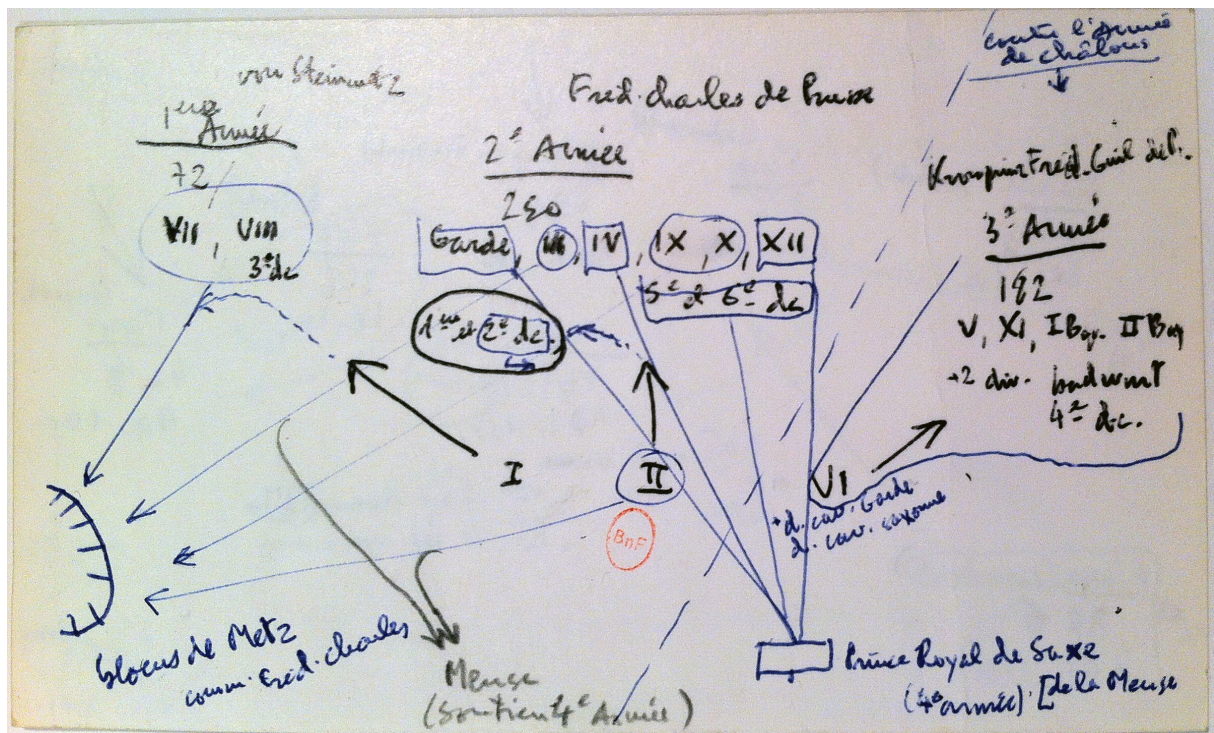 von Steinmetz
1ère
Armée
72
VII, VIII
3e dc
Fred. Charles de Prusse
2e Armée
250
Garde, III, IV, IX, X, XII
5e et 6e dc
1ère et 2e dc.
contre l'Armée
de châlons
Kronprinz Fréd. Guil de P.
3e Armée
182
V, XI, I Bav. II Bav
+2 div. bad wurt
4e d.c.
I
II
VI
BnF
+d. cav. Garde
d. cav. saxonne
blocus de Metz
comm. Fred. Charles
Meuse
(soutien 4e Armée)
Prince Royal de Saxe
(4e armée). [de la Meuse